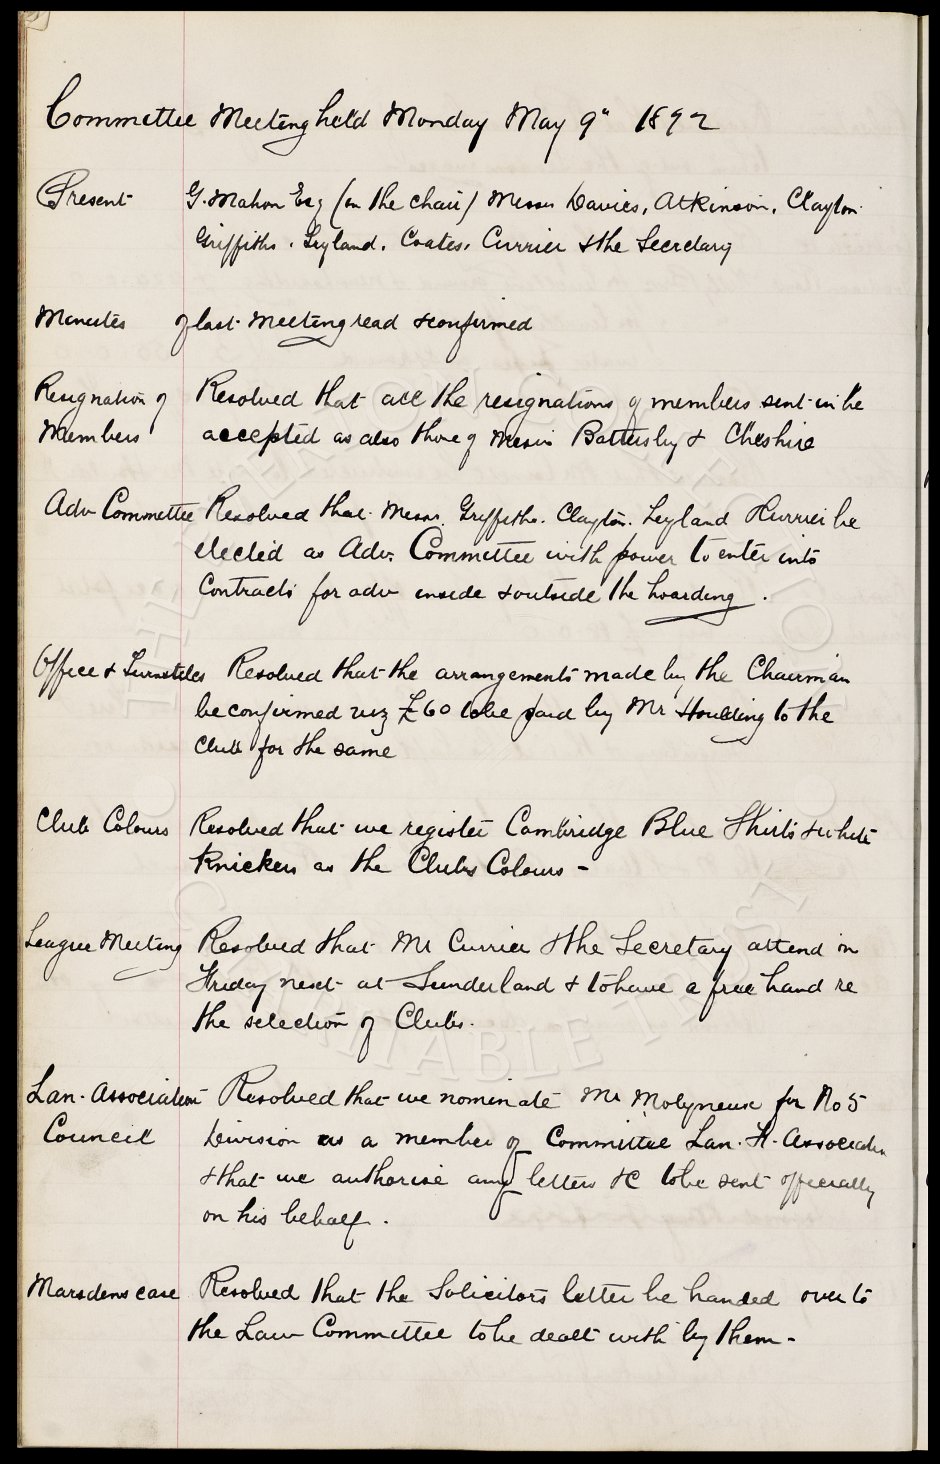 Committee Meeting held Monday May 9" 1892
Present G. Mahon Esq (in the chair) Messrs Davies, Atkinson, Clayton
Griffiths, Leyland, Coates, Currier & the Secretary
Minutes of last meeting read & confirmed
Resignation of Members Resolved that all the resignations of members sent in be
accepted as also those of Messrs Battersby & Cheshire
Adv Committee Resolved that Messrs. Griffiths. Clayton. Leyland & Currier be
elected as Adv. Committee with power to enter into
Contracts for adv inside & outside the hoarding.
Office & Turnstiles Resolved that the arrangements made by the Chairman
be confirmed viz £60 to be paid by Mr Houlding to the
Club for the same
Club Colours Resolved that we register Cambridge Blue Shirts & white
Knickers as the Clubs Colours -
League Meeting Resolved that Mr Currier & the Secretary attend on
Friday next at Sunderland & to have a free hand re
the selection of Clubs.
Lan. Association Council Resolved that we nominate Mr Molyneux for No 5
Division as a member of Committee Lan. F. Association
& that we authorise any letters &c to be sent officially
on his behalf.
Marsdens case Resolved that the Solicitors letter be handed over to
the Law Committee to be dealt with by them -
THE EVERTON COLLECTION CHARITABLE TRUST